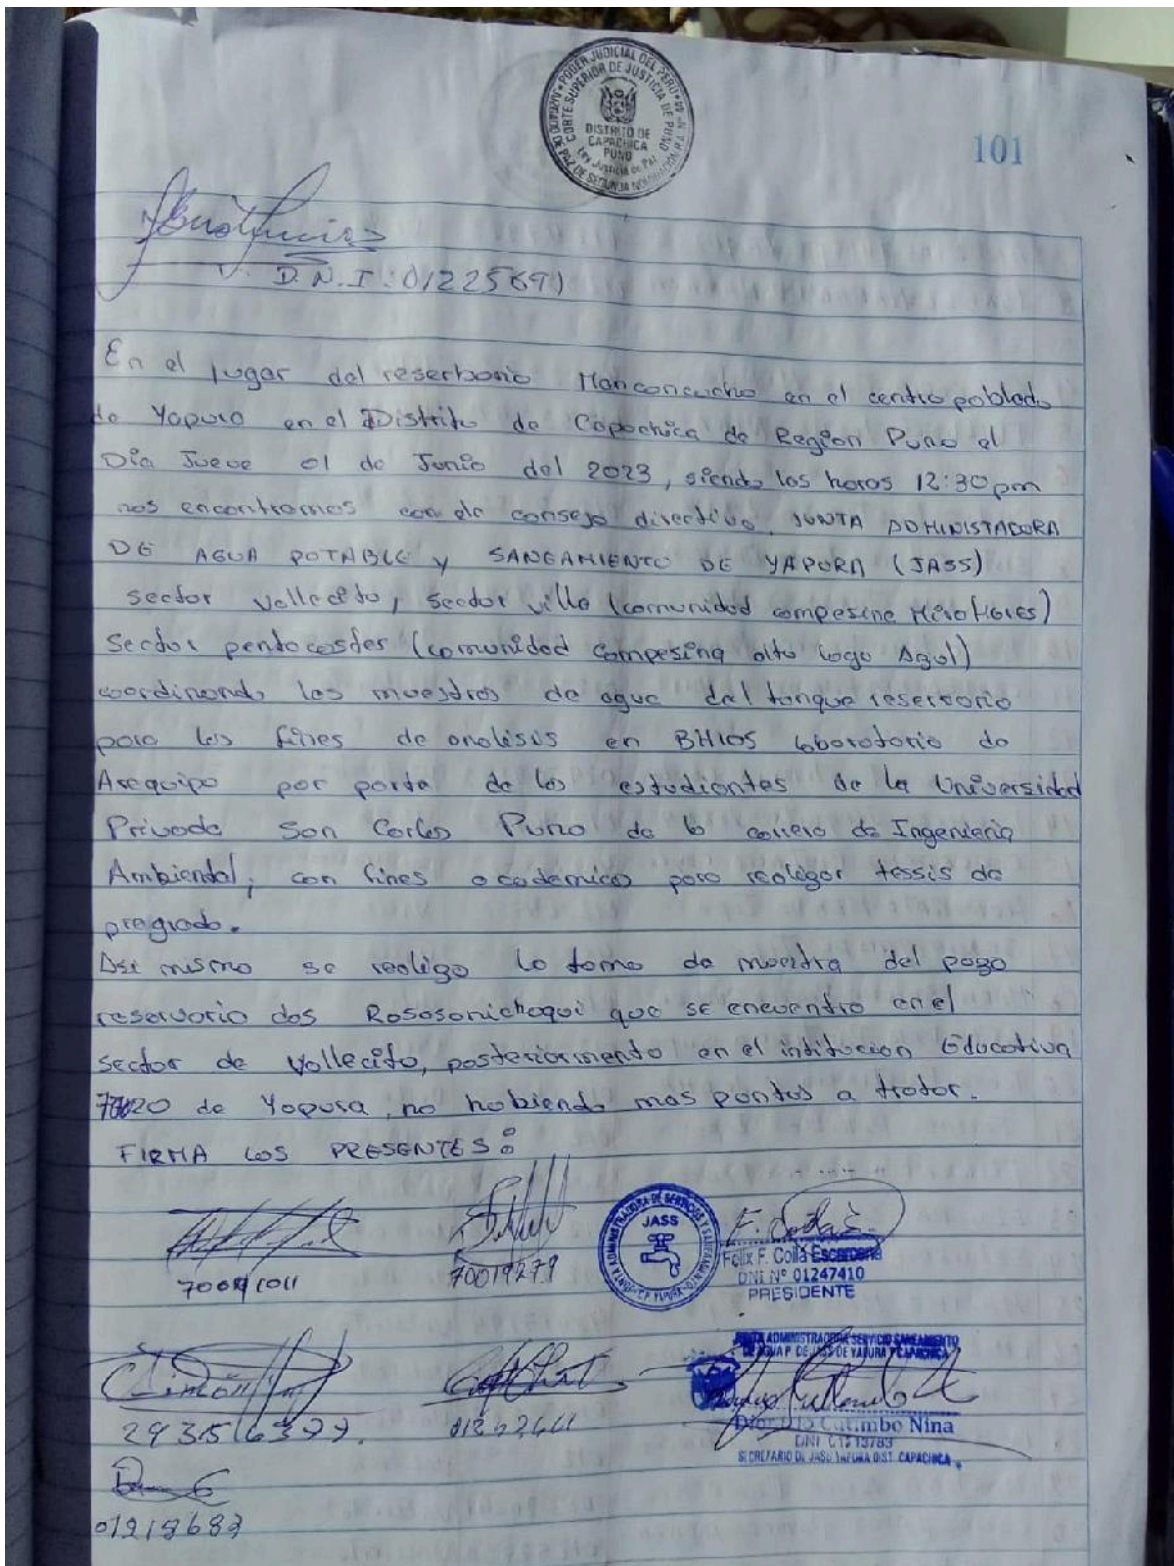 PODER JUDICIAL DEL PERÚ
CORTE SUPERIOR DE JUSTICIA DE PUNO
DISTRITO DE
CAPACHICA
PUNO
Ley Justicia de Paz
101
D.N.I: 01225691
En el lugar del reserborio Manconcucho en el centro poblado
de Yapura en el Distrito de Capachica de Region Puno el
Dia Jueve 01 de Junio del 2023, siendo las horas 12:30 pm
nos encontramos con el consejo directivo, JUNTA ADMINISTADORA
DE AGUA POTABLE y SANEAMIENTO DE YAPURA (JASS)
sector vallecito, sector villa (comunidad campesina Miraflores)
Sector pentocostes (comunidad campesina alto lago Azul)
coordinando las muestras de agua del tanque reservorio
para los fines de analisis en BHIOS laboratorio de
Arequipa por parte de los estudiantes de la Universidad
Privada San Carlos Puno de la carrera de Ingenieria
Ambiental; con fines academicos para realizar tessis de
pregrado.
Asi mismo se realizo la toma de muestra del pozo
reservorio dos Rososonichoqui que se encuentra en el
sector de Vallecito, posteriormente en el intitucion Educativa
de Yapura, no habiendo mas pontos a tratar.
FIRMA LOS PRESENTES:
JASS
F. Coila E.
70019279
Felix F. Coila Escarcena
DNI N° 01247410
PRESIDENTE
JUNTA ADMINISTRADORA SERVICIO SANEAMIENTO
DE AGUA P. DE JASS DE YAPURA Y CAPACHICA
Simón
Cutimbo Nina
SECRETARIO DE JASS YAPURA DIST. CAPACHICA